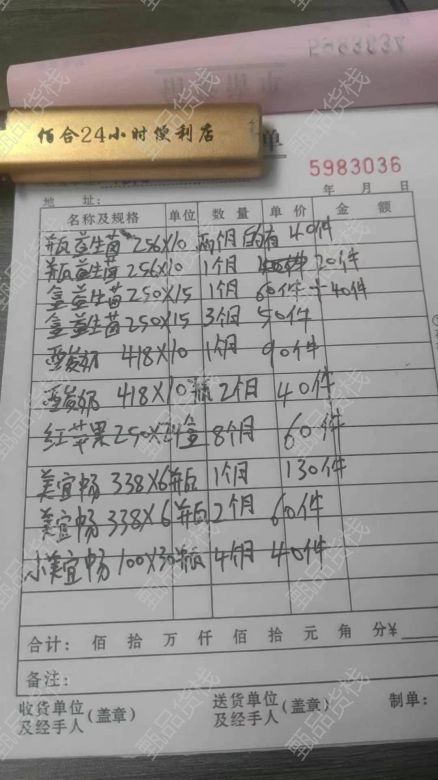 佰合24小时便利店
单
5983036
地 址:
年 月 日
名称及规格 单位 数 量 单 价 金 额
瓶益生菌 256X10 两个月的有 40件
瓶益生菌 256X10 1个月 20件
盒益生菌 250X15 1个月 60件+40件
盒益生菌 250X15 3个月 50件
418X10 1个月 90件
418X10瓶 2个月 40件
红苹果 250X24盒 8个月 60件
美宜畅 338X6瓶 1个月 130件
美宜畅 338X6瓶 2个月 60件
小美宜畅 100X30瓶 4个月 40件
合计: 佰 拾 万 仟 佰 拾 元 角 分¥
备注:
收货单位及经手人(盖章) 送货单位及经手人(盖章) 制单:
甄品货栈